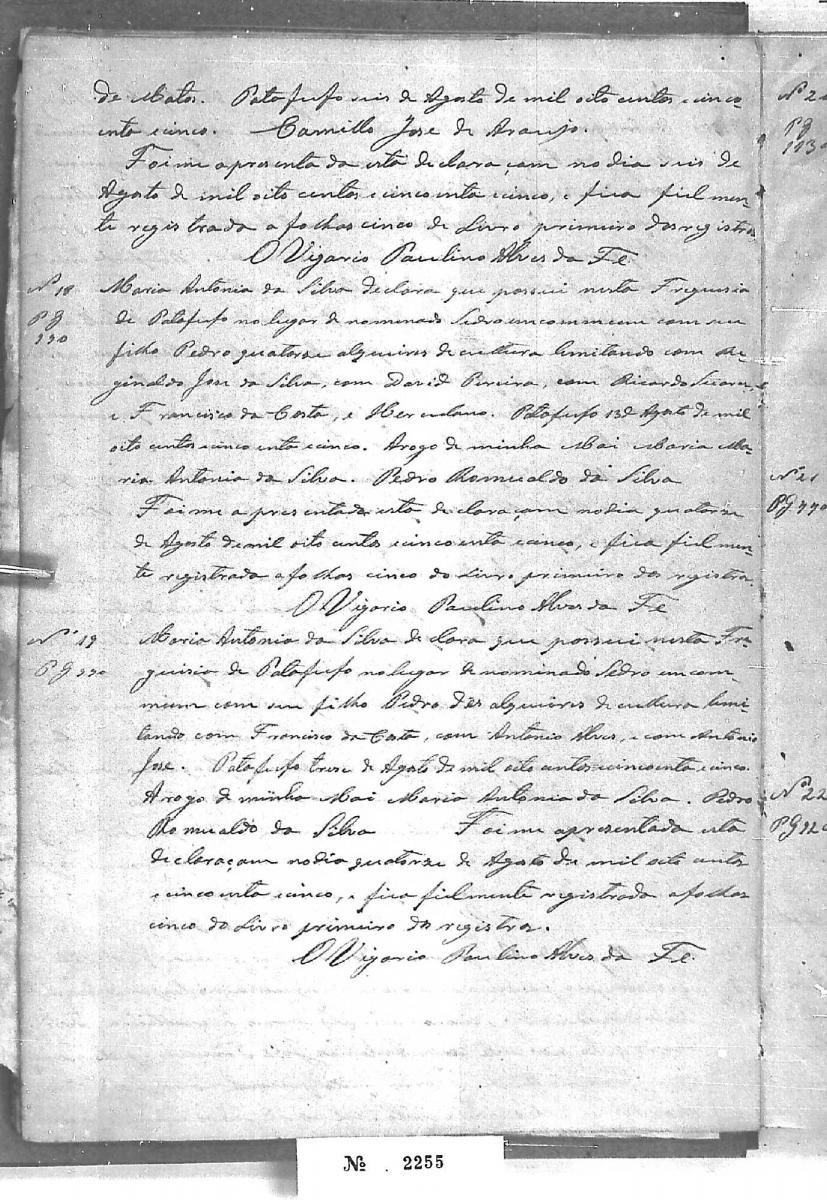 de Matos. Patafufo seis de Agosto de mil oito centos e cinco
enta e cinco. Camillo Jose de Araujo.
Foi me apresentada esta declaraçam no dia seis de
Agosto de mil oito centos e cincoenta e cinco, e fica fielmen-
te registrada a folhas cinco do Livro primeiro dos registros
O Vigario Paulino Alves da Fe.
Nº 18
Pg
Maria Antonia da Silva declara que possui nesta Freguesia
de Patafufo no lugar denominado Sedro em commum com seu
filho Pedro quatorse alqueires de cultura limitando com Re
ginaldo Jose da Silva, com David Pereira, com Ricardo
e Francisco da Costa, e Herculano. Patafufo 13 de Agosto de mil
oito centos e cincoenta e cinco. Arogo de minha Mai Maria Ma-
ria Antonia da Silva. Pedro Romualdo da Silva
Foi me apresentada esta declaraçam no dia quatorze
de Agosto de mil oito centos e cincoenta e cinco, e fica fielmen
te registrada a folhas cinco do Livro primeiro dos registros.
O Vigario Paulino Alves da Fe
Nº 19
Pg
Maria Antonia da Silva declara que possui nesta Fre
guisia de Patafufo no lugar denominado Sedro em com
mum com seu filho Pedro des alqueires de cultura limi
tando com Francisco da Costa, com Antonio Alves, e com Antonio
Jose. Patafufo trese de Agosto de mil oito centos e cincoenta e cinco.
Arogo de minha Mai Maria Antonia da Silva. Pedro
Romualdo da Silva Foi me apresentada esta
declaraçam no dia quatorze de Agosto de mil oito centos
e cincoenta e cinco, e fica fielmente registrada a folhas
cinco do Livro primeiro dos registros.
O Vigario Paulino Alves da Fe.
Nº 21
Pg
Nº 22
Pg
Nº 2255